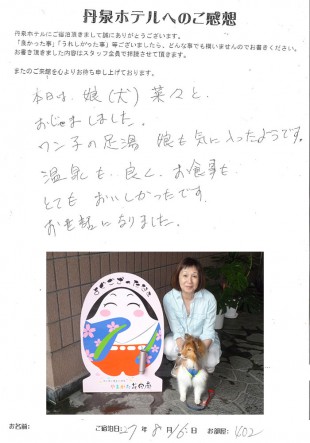 丹泉ホテルへのご感想
丹泉ホテルにご宿泊頂きまして誠にありがとうございます。
「良かった事」「うれしかった事」等ございましたら、どんな事でも構いませんのでお書きください。
お書き頂きました内容はスタッフ全員で拝読させて頂きます。
またのご来館を心よりお待ち申し上げております。
本日は、娘(犬)菜々と、
おじゃましました。
ワン子の足湯 娘も気に入ったようです。
温泉も、良く、お食事も、
とても おいしかったです。
お世話になりました。
お名前:
ご宿泊日: 27 年 8 月 16 日
お部屋: 402